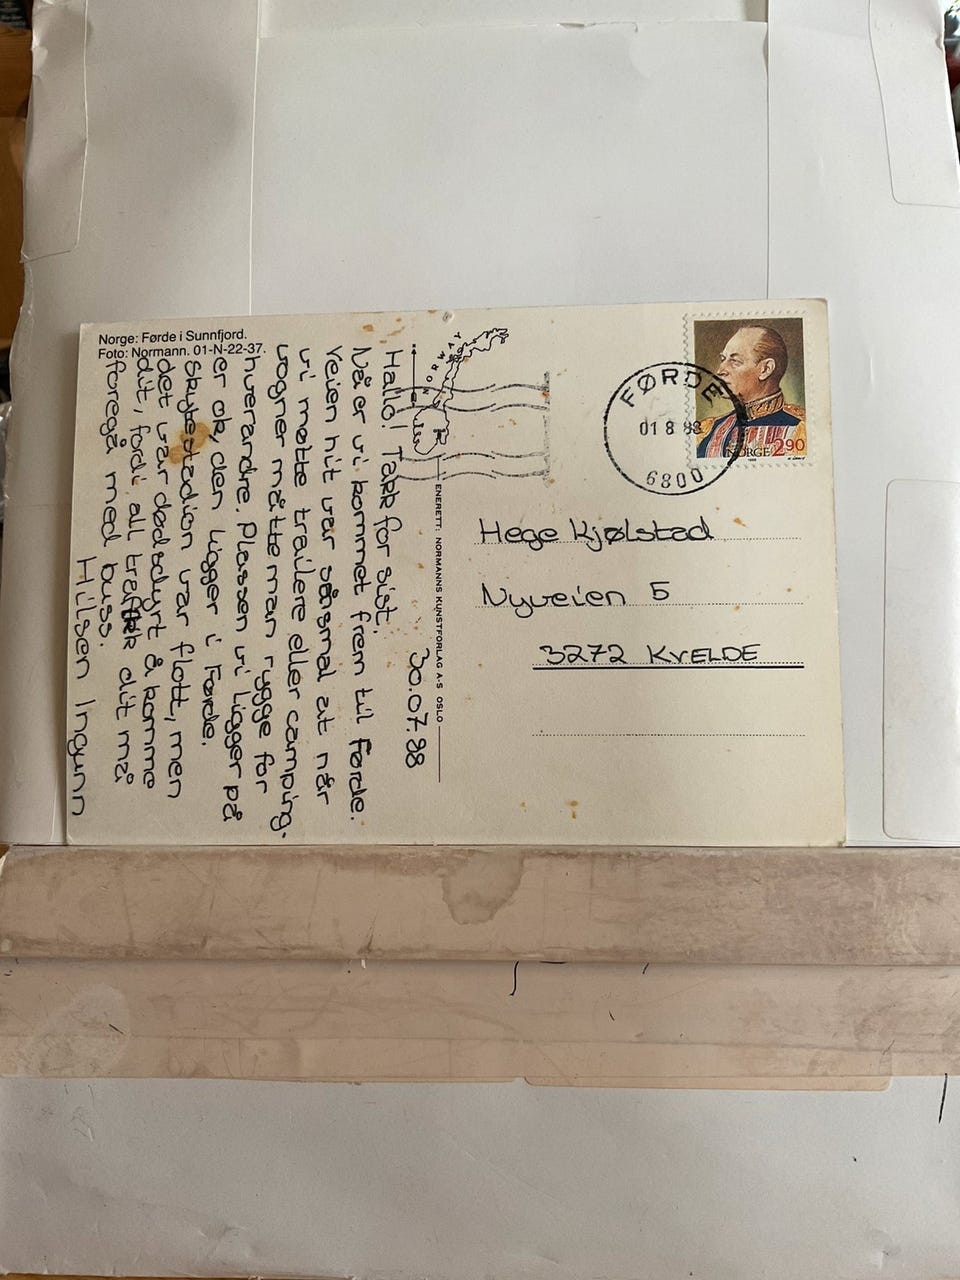 Norge: Førde i Sunnfjord.
Foto: Normann. 01-N-22-37.
30.07.88
Hallo! Takk for sist.
Nå er vi kommet frem til Førde.
Veien hit var så smal at når
vi møtte trailere eller camping-
vogner måtte man rygge for
hverandre. Plassen vi ligger på
er ok, den ligger i Førde.
Skytestadion var flott, men
det var dødsdyrt å komme
dit, fordi all trafikk dit må
foregå med buss.
Hilsen Ingunn
NORWAY
ENERETT: NORMANNS KUNSTFORLAG A·S OSLO
FØRDE
01 8 88
6800
NORGE 2 90
Hege Kjølstad
Nyveien 5
3272 KVELDE